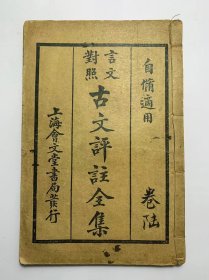 自脩適用
卷陸
言文對照
古文評註全集
上海會文堂書局發行